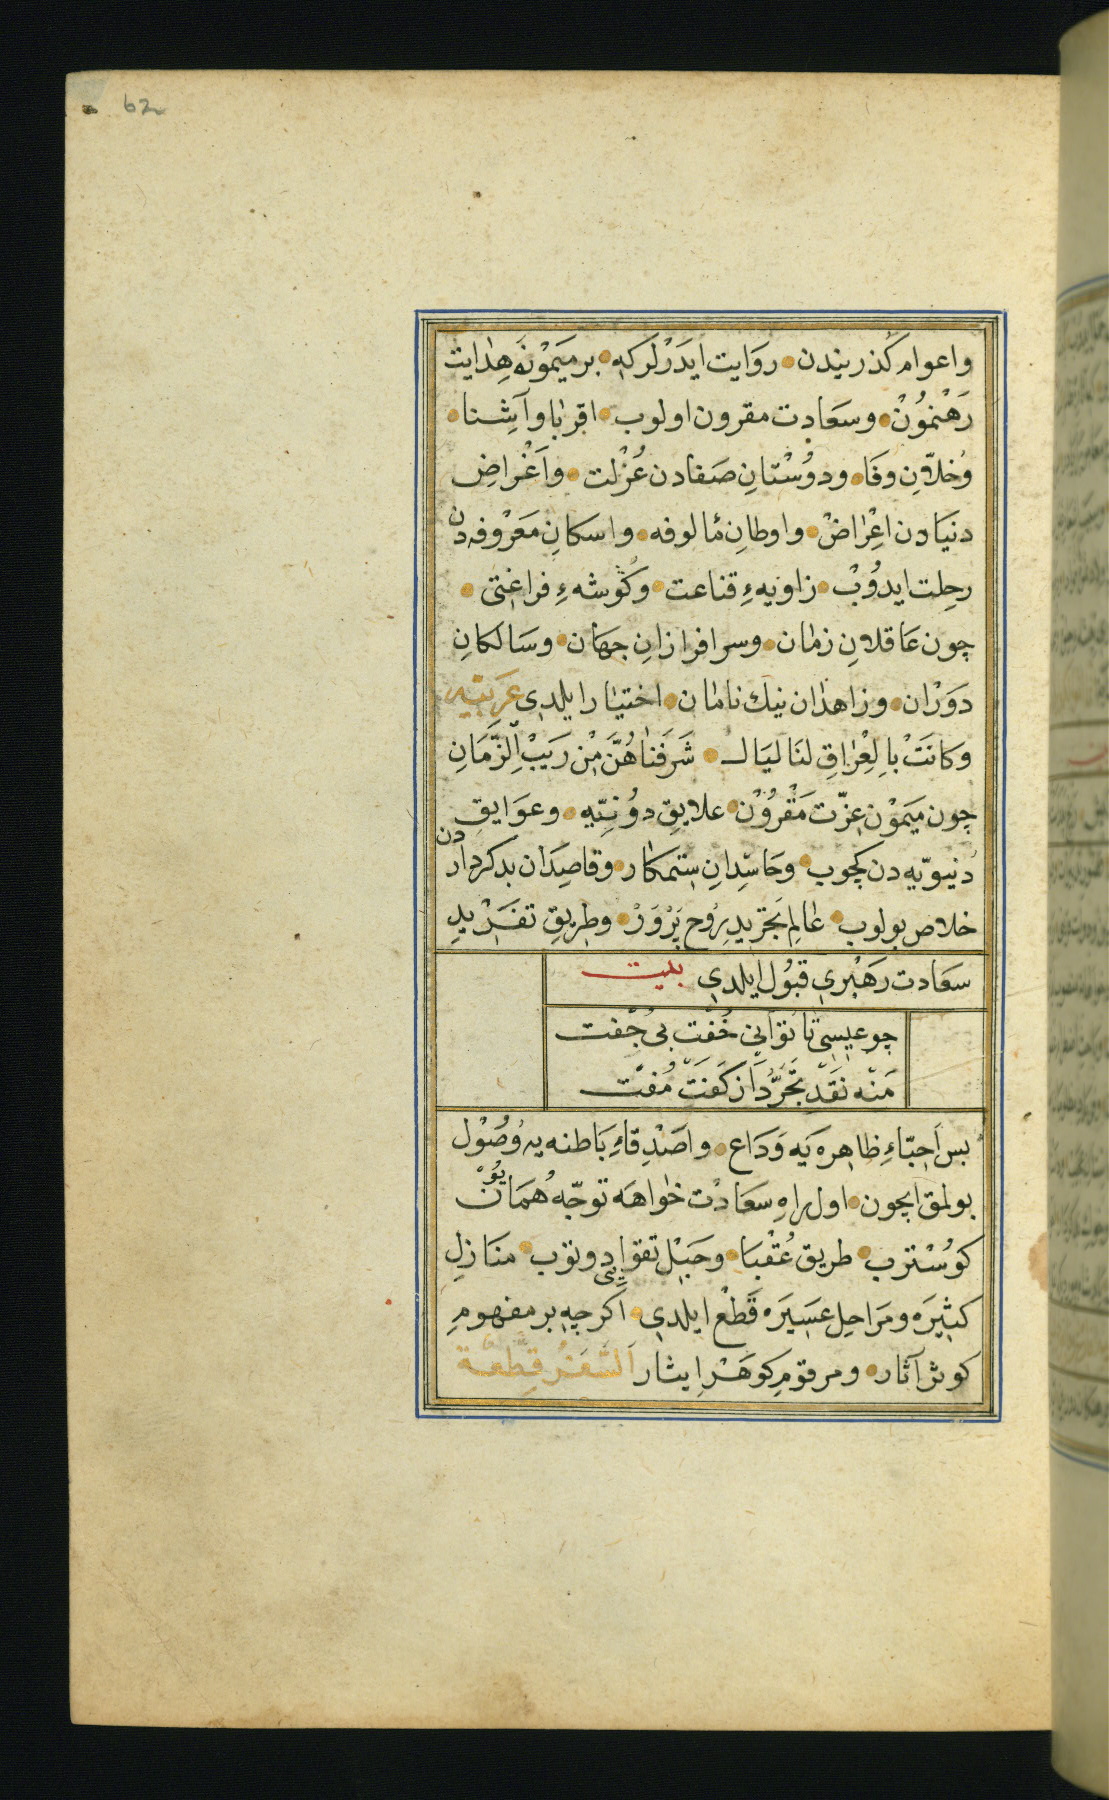 62
واعوام كذرىندن روَايت ايدَرْلركه بر مَيمُونَه هِدايت
رَهْنمُوُنْ وسعَادت مقرون اولوب اقربا وآشِنا
وُخلاّنِ وفَا ودوُسْتانِ صَفادن عُزْلت وآغْراضِ
دنيَادن اعْراضْ واوطانِ مألوفه واسكانِ مَعْروفه دن
رحِلت ايدوُبْ زاويهءِ قناعت وكُوشهءِ فراغتى
چون عَاقلانِ زمان وسرافرازانِ جهَان وسَالكانِ
دَوَرْان وزاهدان نيك نامان اختيار ايلدى عَربيّه
وكانَتْ بالعِراقِ لنَا ليَالـ شَرَفنَاهُنَّ مِنْ رَيَبْ الزَّمَانِ
چون مَيَموْن عِزّت مَقْروُنْ علايقِ دوُنيّه وعوَايقِ
دُنيوّيه دن كچوب وحَاسِدانِ ستمكار وقاصِدَان بدكرداردن
خلاص بولوب عالمِ تجَريدِ رُوح پَرْوَرْ وطريقِ تفَرْيدِ
سعَادت رهَبْرى قبُول ايلدى بيت
چو عيسى تا توانى خُفَت بى جُفت
مَنه نقَدْ تجَرُّد از كفَت مُفت
پس احِبّاءِ ظاهره يَه وَدَاع واصَدْقاءِ بَاطنه يه وُصُوْل
بولمق ايچون اول راهِ سعَادت خواهَه توجّه هُمَايُوْن
كوُسْترب طريق عُقْبا وحَبْل تقوايى دوتوب مَنَازلِ
كثيَره ومَرَاحلِ عسَيَره قَطْع ايلدى اكرچه بر مفهومِ
كوثر آثار ومرقومِ كوهَرْ ايثار السَّفَرُ قِطعَة